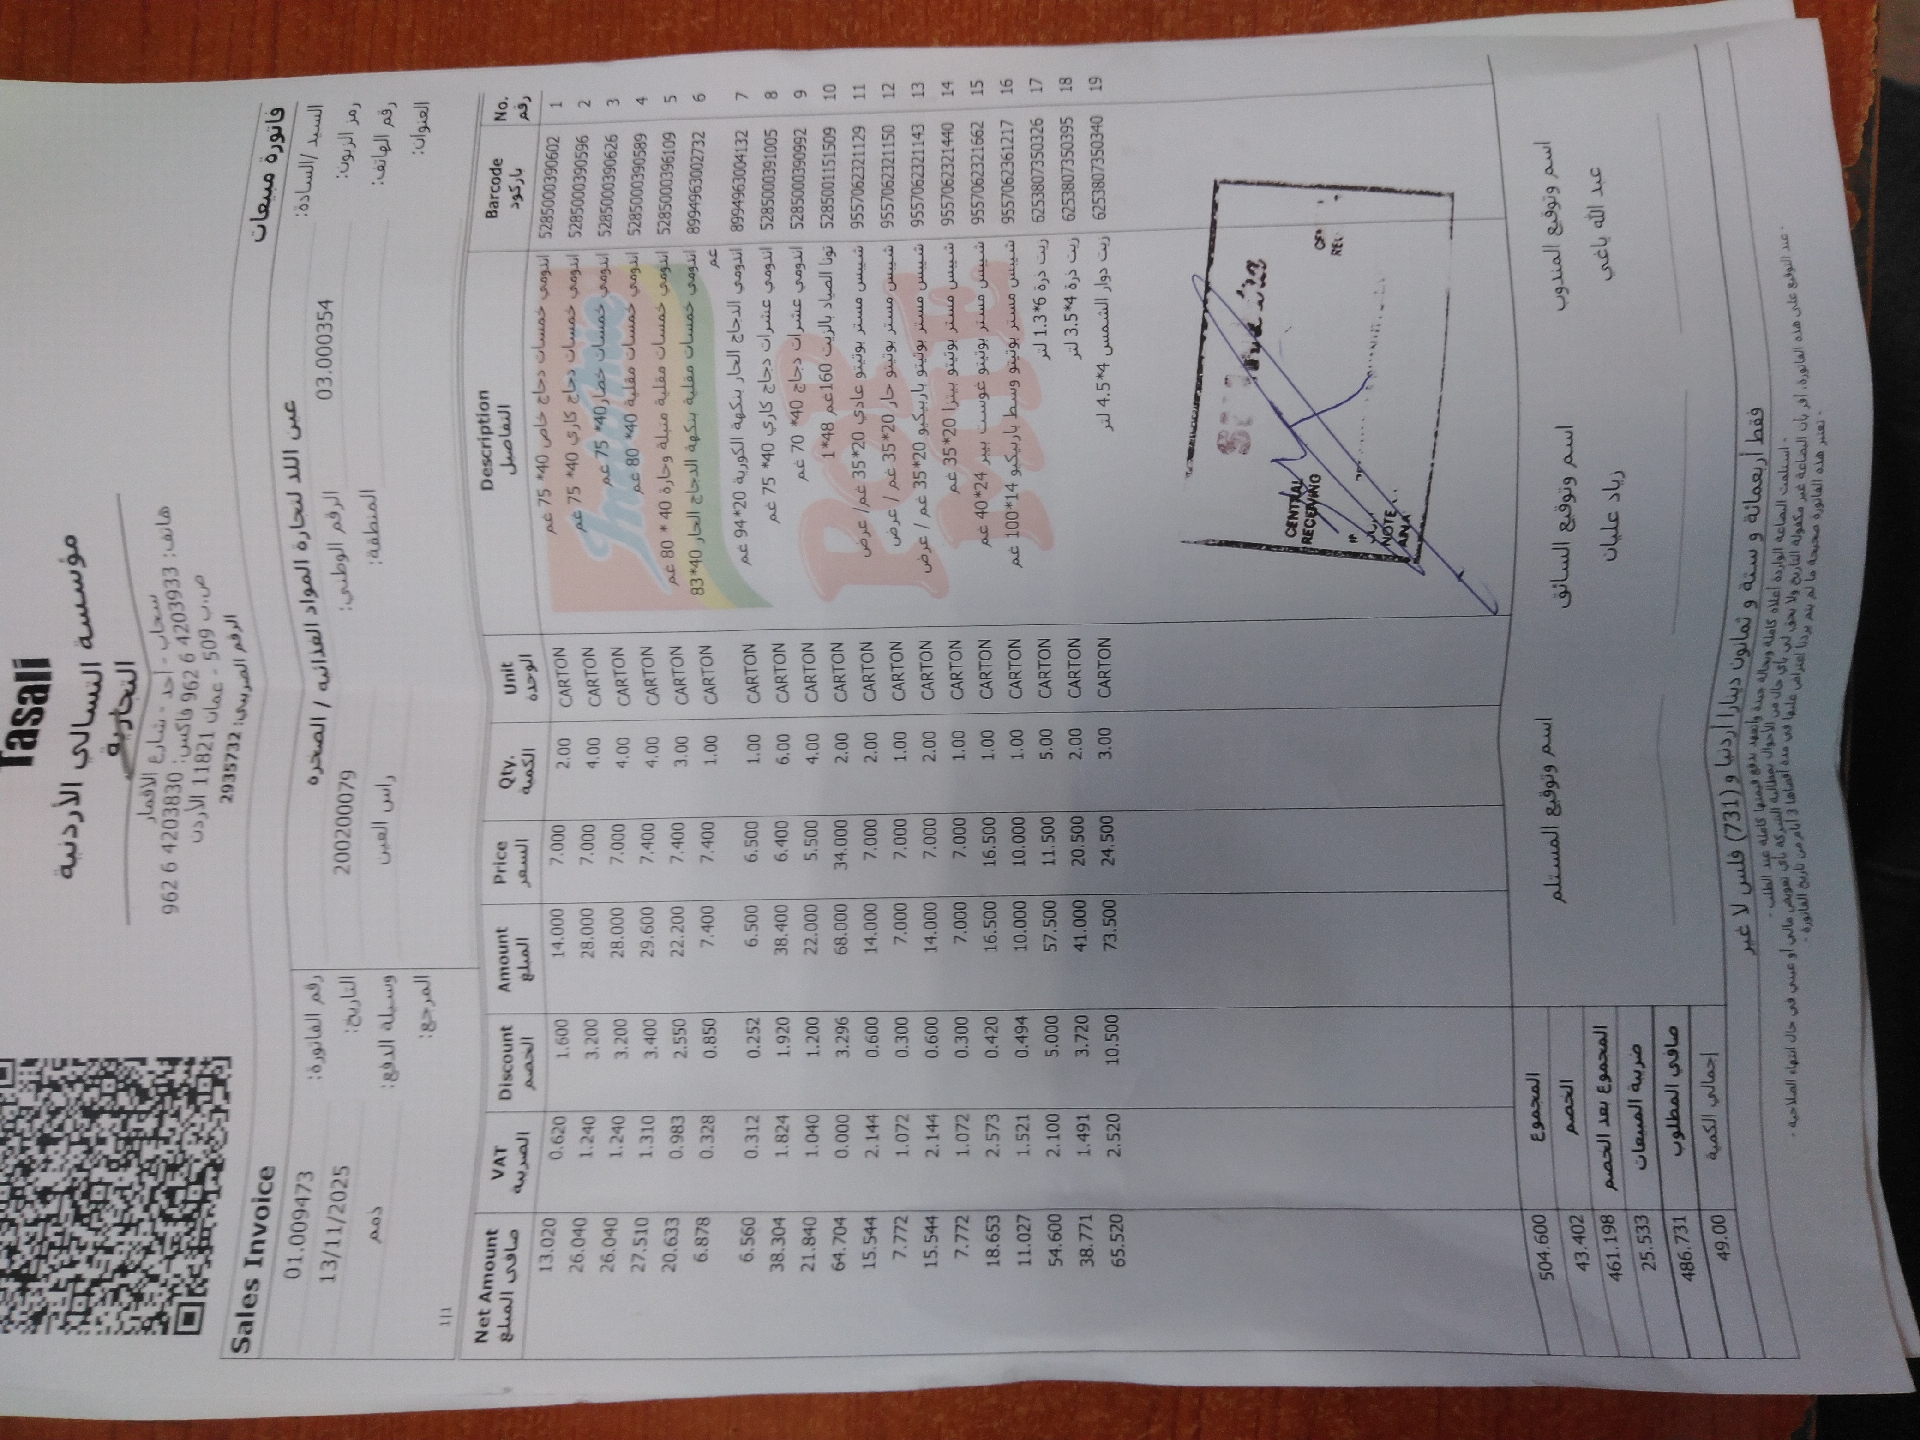 Tasali
مؤسسة التسالي الأردنية
التجارية
سحاب - أحد - شارع الأقمار
هاتف: 4203933 6 962 فاكس: 4203830 6 962
ص.ب 509 - عمان 11821 الأردن
الرقم الضريبي: 2935732
Sales Invoice فاتورة مبيعات
السيد /السادة: عين اللد لتجارة المواد الغذائيه / الصخره رقم الفاتورة: 01.009473
رمز الزبون: 03.000354 الرقم الوطني: 200200079 التاريخ: 13/11/2025
رقم الهاتف: المنطقة: راس العين وسيلة الدفع: ذمم
العنوان: المرجع:
1\1
Net Amount VAT Discount Amount Price Qty. Unit Description Barcode No.
صافي المبلغ الضريبة الخصم المبلغ السعر الكمية الوحدة التفاصيل باركود رقم
13.020 0.620 1.600 14.000 7.000 2.00 CARTON اندومي خمسات دجاج خاص 40* 75 غم 5285000390602 1
26.040 1.240 3.200 28.000 7.000 4.00 CARTON اندومي خمسات دجاج كاري 40* 75 غم 5285000390596 2
26.040 1.240 3.200 28.000 7.000 4.00 CARTON اندومي خمسات خضار 40* 75 غم 5285000390626 3
27.510 1.310 3.400 29.600 7.400 4.00 CARTON اندومي خمسات مقلية 40* 80 غم 5285000390589 4
20.633 0.983 2.550 22.200 7.400 3.00 CARTON اندومي خمسات مقلية متبلة وحارة 40 * 80 غم 5285000396109 5
6.878 0.328 0.850 7.400 7.400 1.00 CARTON اندومي خمسات مقلية بنكهة الدجاج الحار 40*83 غم 8994963002732 6
6.560 0.312 0.252 6.500 6.500 1.00 CARTON اندومي الدجاج الحار بنكهة الكورية 20*94 غم 8994963004132 7
38.304 1.824 1.920 38.400 6.400 6.00 CARTON اندومي عشرات دجاج كاري 40* 75 غم 5285000391005 8
21.840 1.040 1.200 22.000 5.500 4.00 CARTON اندومي عشرات دجاج 40* 70 غم 5285000390992 9
64.704 0.000 3.296 68.000 34.000 2.00 CARTON تونا الصياد بالزيت 160غم 48*1 5285001151509 10
15.544 2.144 0.600 14.000 7.000 2.00 CARTON شيبس مستر بوتيتو عادي 20*35 غم/ عرض 9557062321129 11
7.772 1.072 0.300 7.000 7.000 1.00 CARTON شيبس مستر بوتيتو حار 20*35 غم / عرض 9557062321150 12
15.544 2.144 0.600 14.000 7.000 2.00 CARTON شيبس مستر بوتيتو باربيكيو 20*35 غم / عرض 9557062321143 13
7.772 1.072 0.300 7.000 7.000 1.00 CARTON شيبس مستر بوتيتو بيتزا 20*35 غم 9557062321440 14
18.653 2.573 0.420 16.500 16.500 1.00 CARTON شيبس مستر بوتيتو غوست بيبر 24*40 غم 9557062321662 15
11.027 1.521 0.494 10.000 10.000 1.00 CARTON شيبس مستر بوتيتو وسط باربيكيو 14*100 غم 9557062361217 16
54.600 2.100 5.000 57.500 11.500 5.00 CARTON زيت ذرة 6*1.3 لتر 6253807350326 17
38.771 1.491 3.720 41.000 20.500 2.00 CARTON زيت ذرة 4*3.5 لتر 6253807350395 18
65.520 2.520 10.500 73.500 24.500 3.00 CARTON زيت دوار الشمس 4*4.5 لتر 6253807350340 19
Indomie
POTATO
CENTRAL
RECEIVING
NOTE
اسم وتوقيع المندوب اسم وتوقيع السائق اسم وتوقيع المستلم
عبد الله ياغي زياد عليان
504.600 المجموع
43.402 الخصم
461.198 المجموع بعد الخصم
25.533 ضريبة المبيعات
486.731 صافي المطلوب
49.00 إجمالي الكمية
فقط أربعمائة و ستة و ثمانون ديناراً أردنياً و (731) فلس لا غير